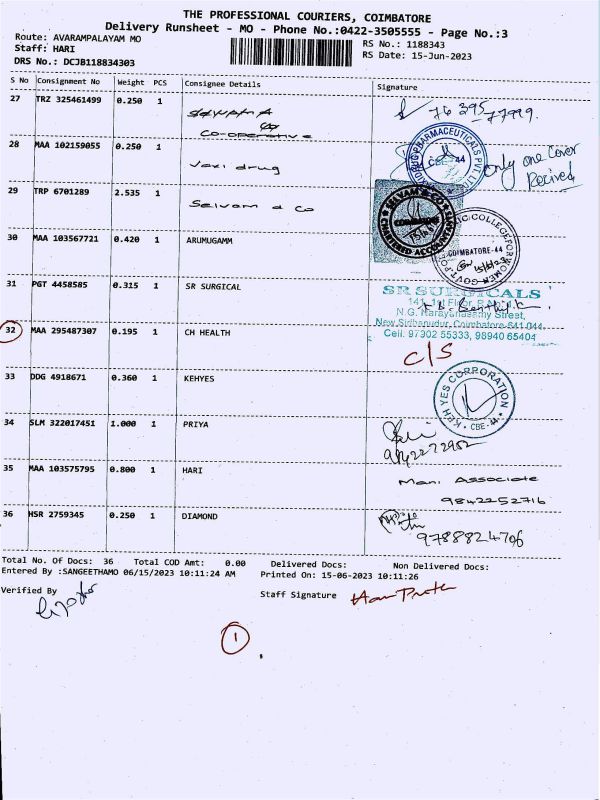 THE PROFESSIONAL COURIERS, COIMBATORE
Delivery Runsheet - MO - Phone No.:0422-3505555 - Page No.:3
Route: AVARAMPALAYAM MO
RS No.: 1188343
Staff: HARI
RS Date: 15-Jun-2023
DRS No.: DCJB118834303
S No Consignment No Weight PCS Consignee Details Signature
27 TRZ 325461499 0.250 1 Co-operative
28 MAA 102159055 0.250 1 drug CBE-44 only one Cover
Recived
29 TRP 6701289 2.535 1 Selvam & Co SELVAM & CO CHARTERED ACCOUNTANTS
30 MAA 103567721 0.420 1 ARUMUGAMM COIMBATORE-44
31 PGT 4458585 0.315 1 SR SURGICAL SR SURGICALS
N.G. Narayanasamy Street,
New Sidhapudur, Coimbatore-641 044.
Cell: 97902 55333, 98940 65404
32 MAA 295487307 0.195 1 CH HEALTH C/S
33 DDG 4918671 0.360 1 KEHYES KEH YES CORPORATION CBE-44
34 SLM 322017451 1.000 1 PRIYA
35 MAA 103575795 0.800 1 HARI Mani Associate
9842252716
36 HSR 2759345 0.250 1 DIAMOND 9788824706
Total No. Of Docs: 36 Total COD Amt: 0.00 Delivered Docs: Non Delivered Docs:
Entered By :SANGEETHAMO 06/15/2023 10:11:24 AM Printed On: 15-06-2023 10:11:26
Verified By
Staff Signature
1